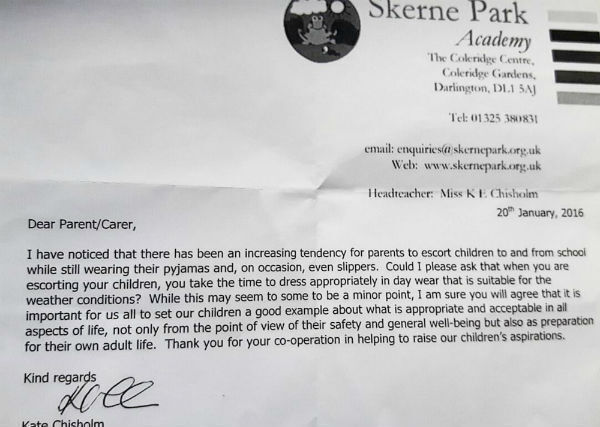 Skerne Park
Academy
The Coleridge Centre,
Coleridge Gardens,
Darlington, DL1 5AJ
Tel: 01325 380831
email: enquiries@skernepark.org.uk
Web: www.skernepark.org.uk
Headteacher: Miss K E Chisholm
20th January, 2016
Dear Parent/Carer,
I have noticed that there has been an increasing tendency for parents to escort children to and from school
while still wearing their pyjamas and, on occasion, even slippers. Could I please ask that when you are
escorting your children, you take the time to dress appropriately in day wear that is suitable for the
weather conditions? While this may seem to some to be a minor point, I am sure you will agree that it is
important for us all to set our children a good example about what is appropriate and acceptable in all
aspects of life, not only from the point of view of their safety and general well-being but also as preparation
for their own adult life. Thank you for your co-operation in helping to raise our children's aspirations.
Kind regards
Kate Chisholm